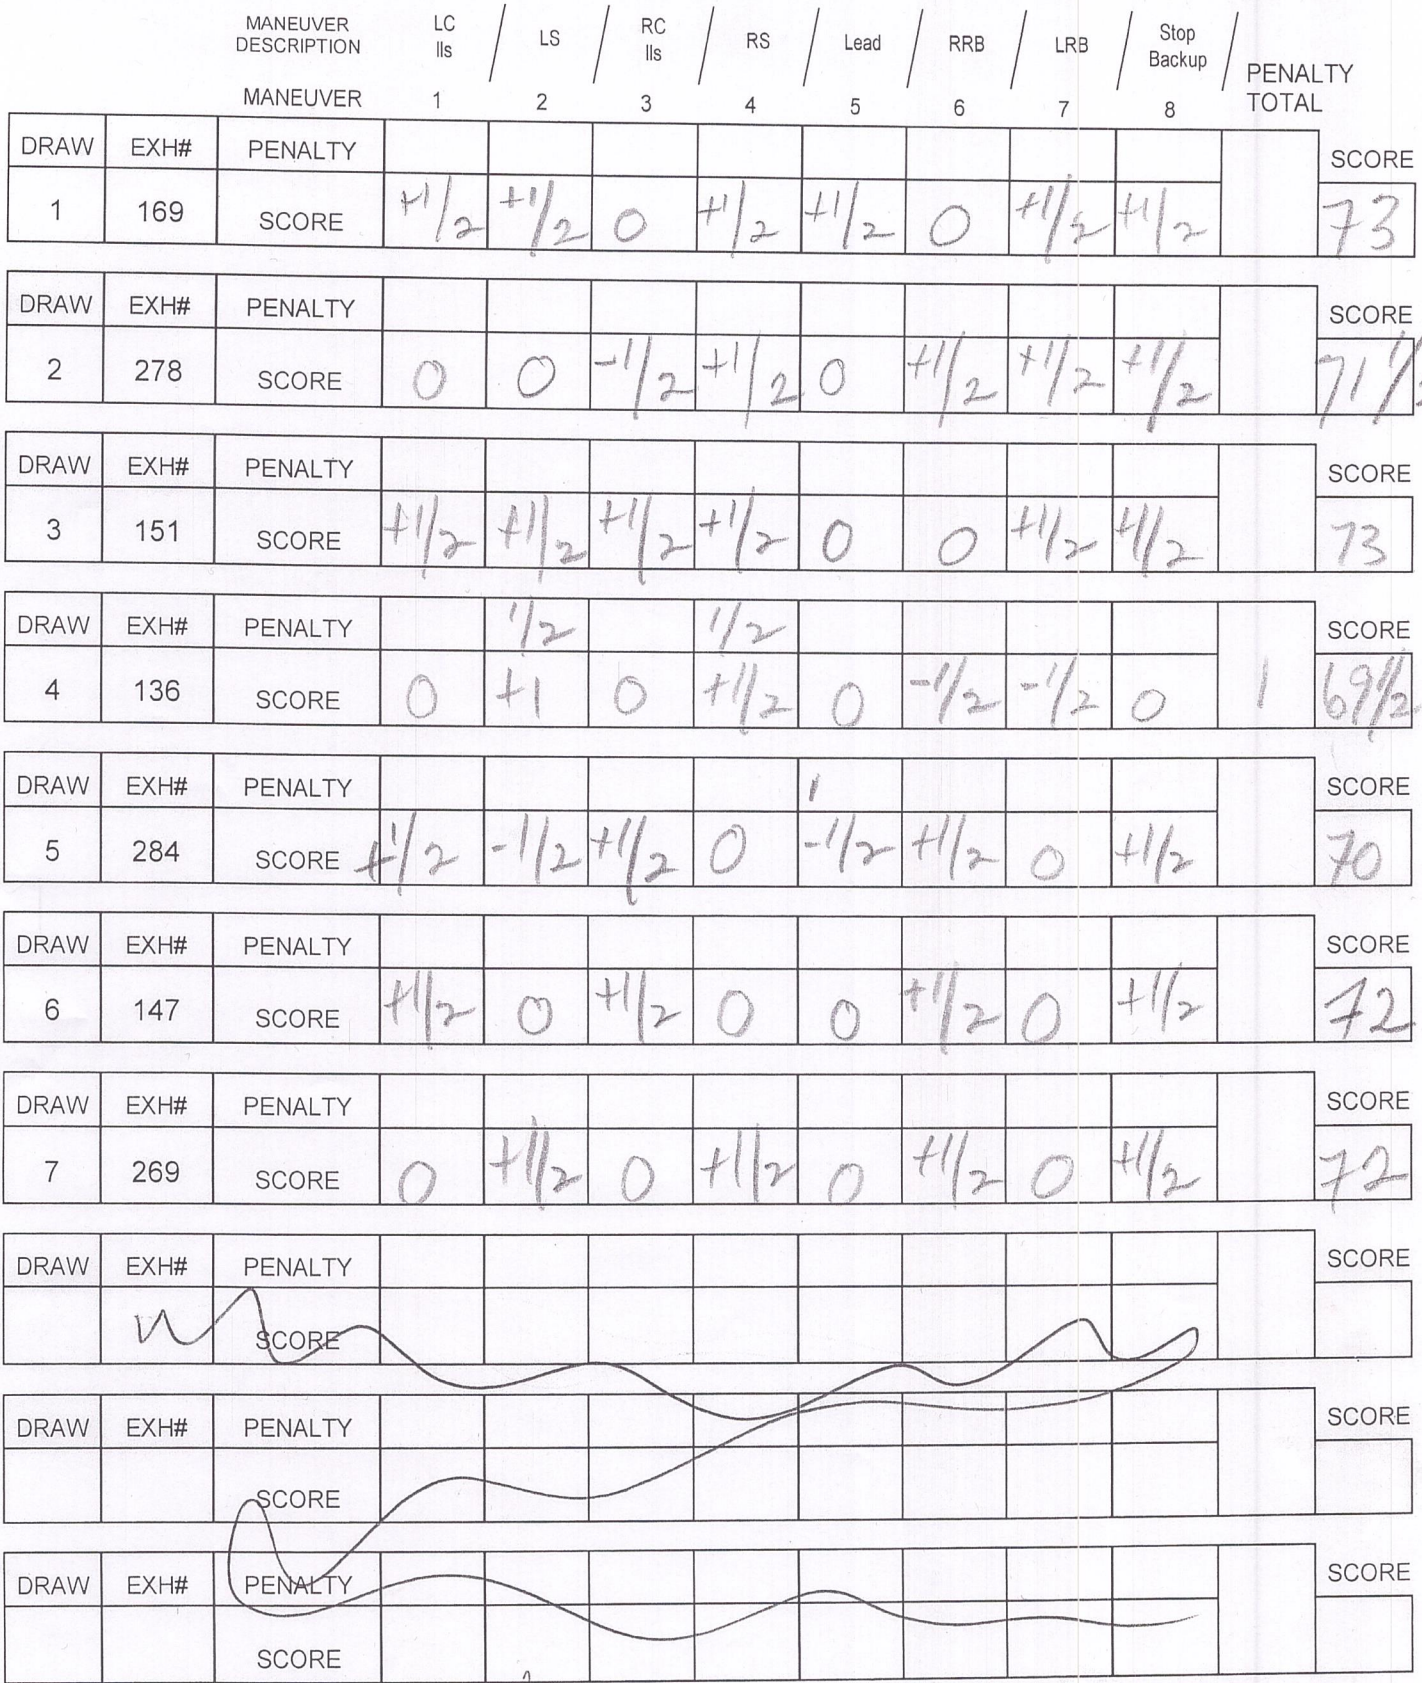 MANEUVER DESCRIPTION LC lls / LS / RC lls / RS / Lead / RRB / LRB / Stop Backup / PENALTY TOTAL
MANEUVER 1 2 3 4 5 6 7 8
DRAW EXH# PENALTY SCORE
1 169 SCORE +1/2 +1/2 0 +1/2 +1/2 0 +1/2 +1/2 73
DRAW EXH# PENALTY SCORE
2 278 SCORE 0 0 -1/2 +1/2 0 +1/2 +1/2 +1/2 71 1/2
DRAW EXH# PENALTY SCORE
3 151 SCORE +1/2 +1/2 +1/2 +1/2 0 0 +1/2 +1/2 73
DRAW EXH# PENALTY 1/2 1/2 SCORE
4 136 SCORE 0 +1 0 +1/2 0 -1/2 -1/2 0 1 69 1/2
DRAW EXH# PENALTY 1 SCORE
5 284 SCORE +1/2 -1/2 +1/2 0 -1/2 +1/2 0 +1/2 70
DRAW EXH# PENALTY SCORE
6 147 SCORE +1/2 0 +1/2 0 0 +1/2 0 +1/2 72
DRAW EXH# PENALTY SCORE
7 269 SCORE 0 +1/2 0 +1/2 0 +1/2 0 +1/2 72
DRAW EXH# PENALTY SCORE
SCORE
DRAW EXH# PENALTY SCORE
SCORE
DRAW EXH# PENALTY SCORE
SCORE